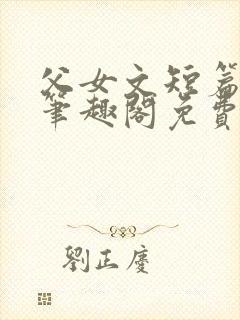 父女文短篇
筆趣閣免費
劉正慶